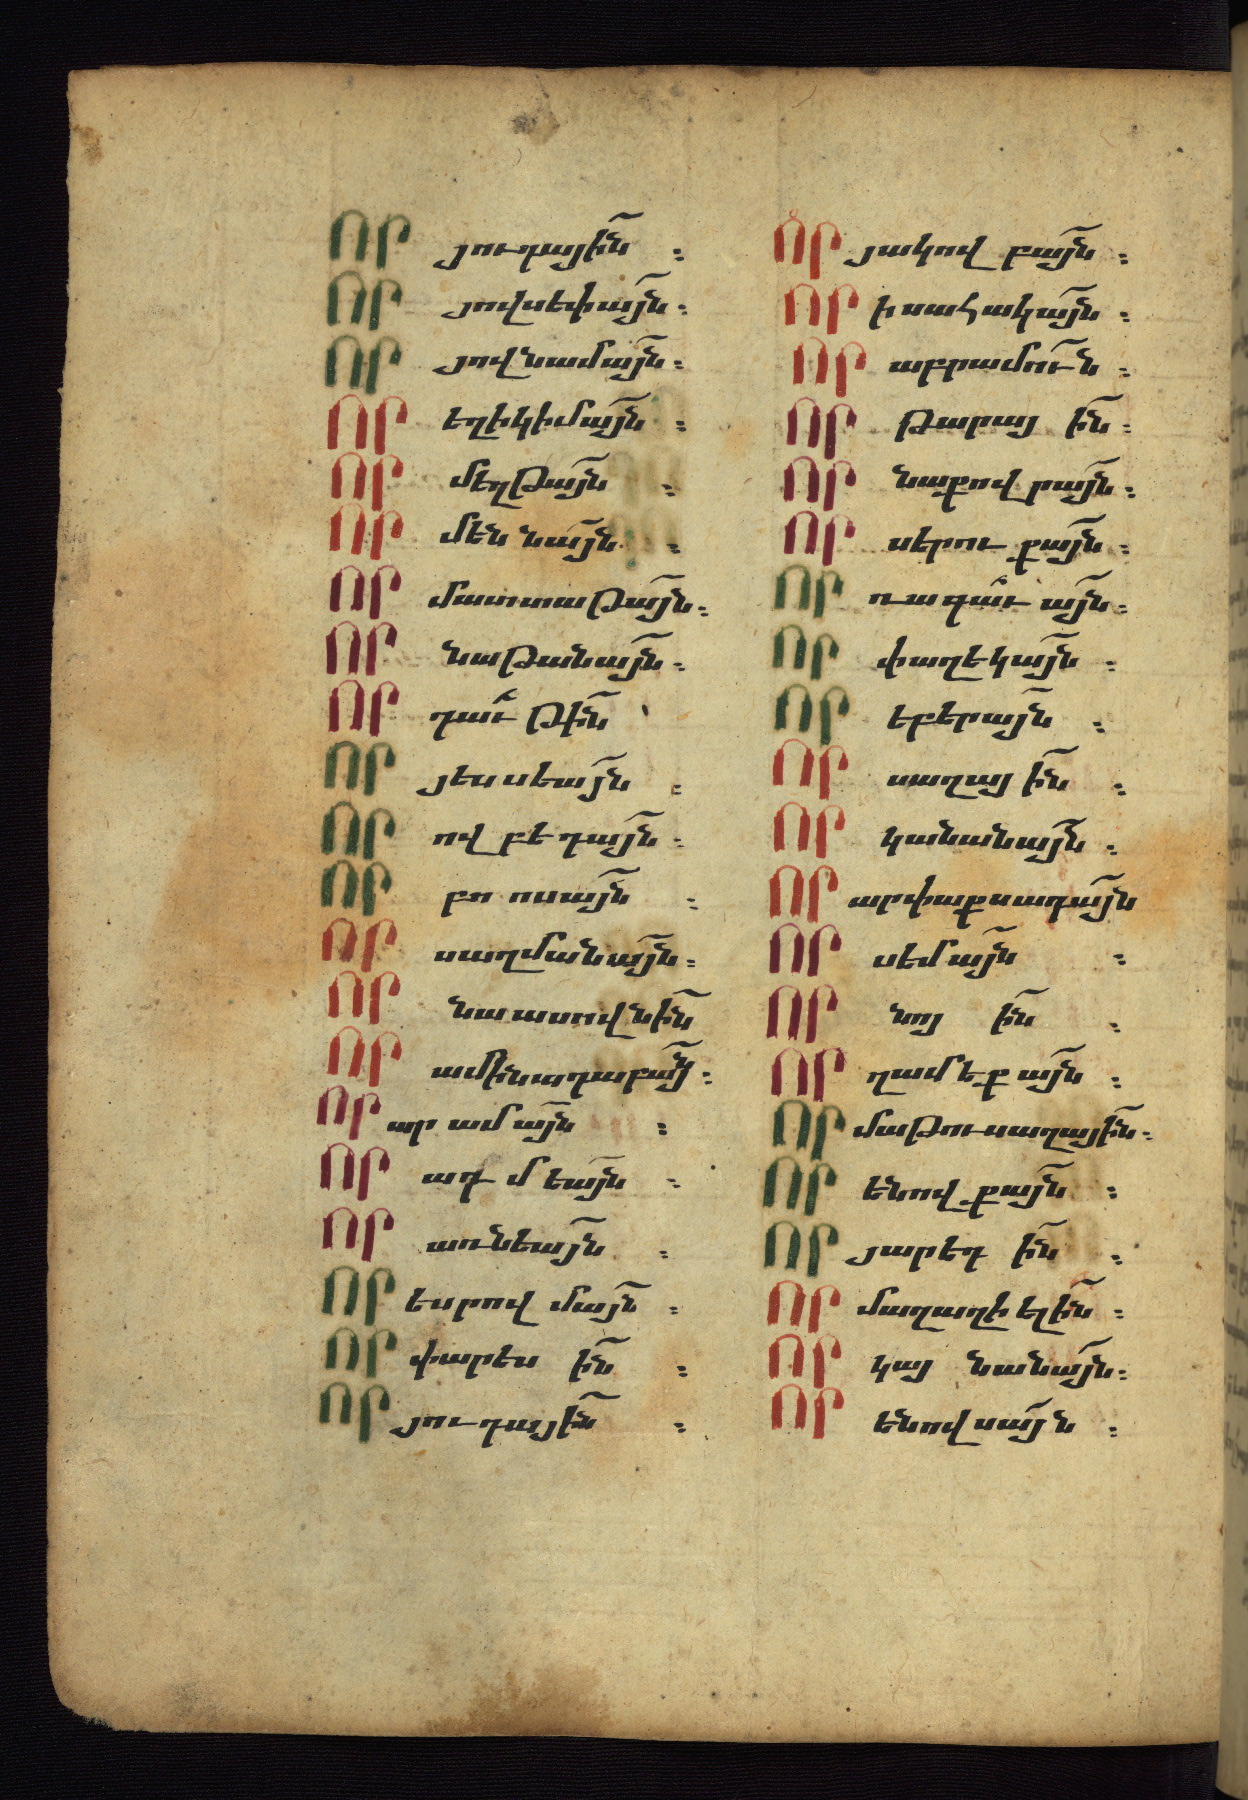 ՈՐ յուդայի՜ն ։
ՈՐ յովսեփայ՜ն ։
ՈՐ յովնամայ՜ն ։
ՈՐ եղիկիմայ՜ն ։
ՈՐ մեղթայ՜ն ։
ՈՐ մեննայ՜ն ։
ՈՐ մատտաթայ՜ն ։
ՈՐ նաթանայ՜ն ։
ՈՐ դաւթի՜ն
ՈՐ յեսսեայ՜ն ։
ՈՐ ովբեդայ՜ն ։
ՈՐ բոոսայ՜ն ։
ՈՐ սաղմանայ՜ն ։
ՈՐ նաասովնի՜ն
ՈՐ ամինադաբայ՜ն ։
ՈՐ արամայ՜ն ։
ՈՐ ադմեայ՜ն ։
ՈՐ առնեայ՜ն ։
ՈՐ եսրովմայ՜ն ։
ՈՐ փարեսի՜ն ։
ՈՐ յուդայի՜ն ։
ՈՐ յակովբայ՜ն ։
ՈՐ իսահակայ՜ն ։
ՈՐ աբրամու՜ն ։
ՈՐ թարայի՜ն ։
ՈՐ նաքովրայ՜ն ։
ՈՐ սերուքայ՜ն ։
ՈՐ ռագաւայ՜ն ։
ՈՐ փաղեկայ՜ն ։
ՈՐ եբերայ՜ն ։
ՈՐ սաղայի՜ն ։
ՈՐ կանանայ՜ն ։
ՈՐ արփաքսադայ՜ն
ՈՐ սեմայ՜ն ։
ՈՐ նոյի՜ն ։
ՈՐ ղամեքայ՜ն ։
ՈՐ մաթուսաղայի՜ն ։
ՈՐ ենովքայ՜ն ։
ՈՐ յարեդի՜ն ։
ՈՐ մաղաղիելի՜ն ։
ՈՐ կայնանայ՜ն ։
ՈՐ ենովսայ՜ն ։